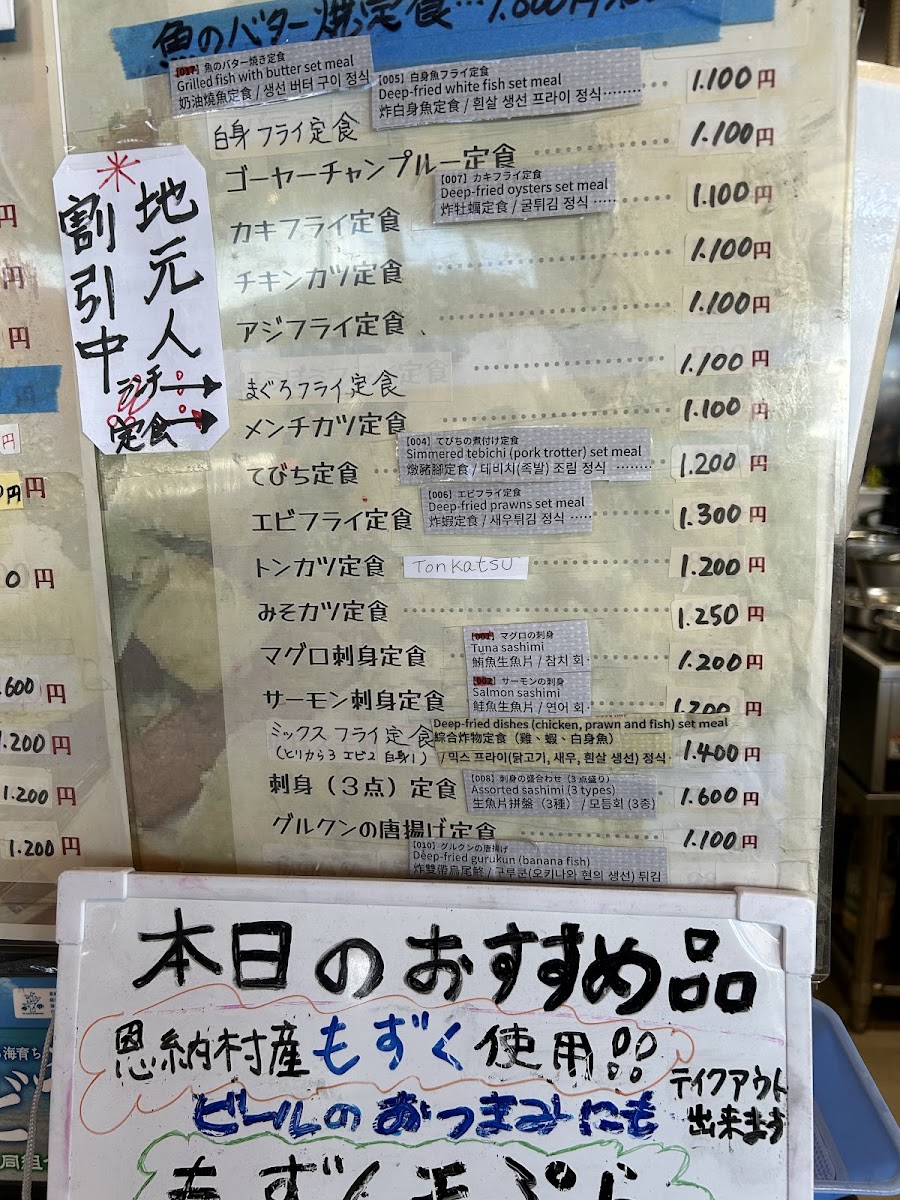 魚のバター焼定食…1.800円
【017】魚のバター焼き定食
Grilled fish with butter set meal
奶油燒魚定食 / 생선 버터 구이 정식
【005】白身魚フライ定食
Deep-fried white fish set meal
炸白身魚定食 / 흰살 생선 프라이 정식………
白身フライ定食 1.100円
ゴーヤーチャンプルー定食 1.100円
【007】カキフライ定食
Deep-fried oysters set meal
炸牡蠣定食 / 굴튀김 정식 ……
カキフライ定食 1.100円
チキンカツ定食 1.100円
アジフライ定食 1.100円
まぐろフライ定食 1.100円
メンチカツ定食 1.100円
【004】てびちの煮付け定食
Simmered tebichi (pork trotter) set meal
燉豬腳定食 / 테비치(족발) 조림 정식 ………
てびち定食 1.200円
【006】エビフライ定食
Deep-fried prawns set meal
炸蝦定食 / 새우튀김 정식 ……
エビフライ定食 1.300円
トンカツ定食 Tonkatsu 1.200円
みそカツ定食 1.250円
マグロの刺身
Tuna sashimi
鮪魚生魚片 / 참치 회
マグロ刺身定食 1.200円
【002】サーモンの刺身
Salmon sashimi
鮭魚生魚片 / 연어 회
サーモン刺身定食 1.200円
Deep-fried dishes (chicken, prawn and fish) set meal
綜合炸物定食（雞、蝦、白身魚）
/ 믹스 프라이(닭고기, 새우, 흰살 생선) 정식
ミックスフライ定食 1.400円
(とりから3 エビ2 白身1)
【008】刺身の盛合わせ（3点盛り）
Assorted sashimi (3 types)
生魚片拼盤（3種） / 모듬회 (3종)
刺身（3点）定食 1.600円
グルクンの唐揚げ定食 1.100円
【010】グルクンの唐揚げ
Deep-fried gurukun (banana fish)
炸雙帶烏尾鮗 / 구루쿤(오키나와 현의 생선) 튀김
地元人
割引中
ランチ→
定食→
円
円
円
円
円
0円
600円
1.200円
1.200円
1.200円
本日のおすすめ品
恩納村産もずく使用!!
ビールのおつまみにも
テイクアウト
出来ます
もずく天ぷら